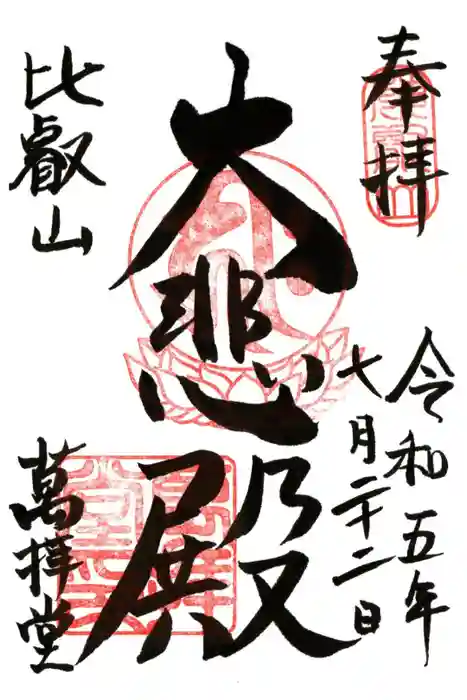 奉拝
令和五年
七月二十二日
大悲殿
比叡山
萬拝堂